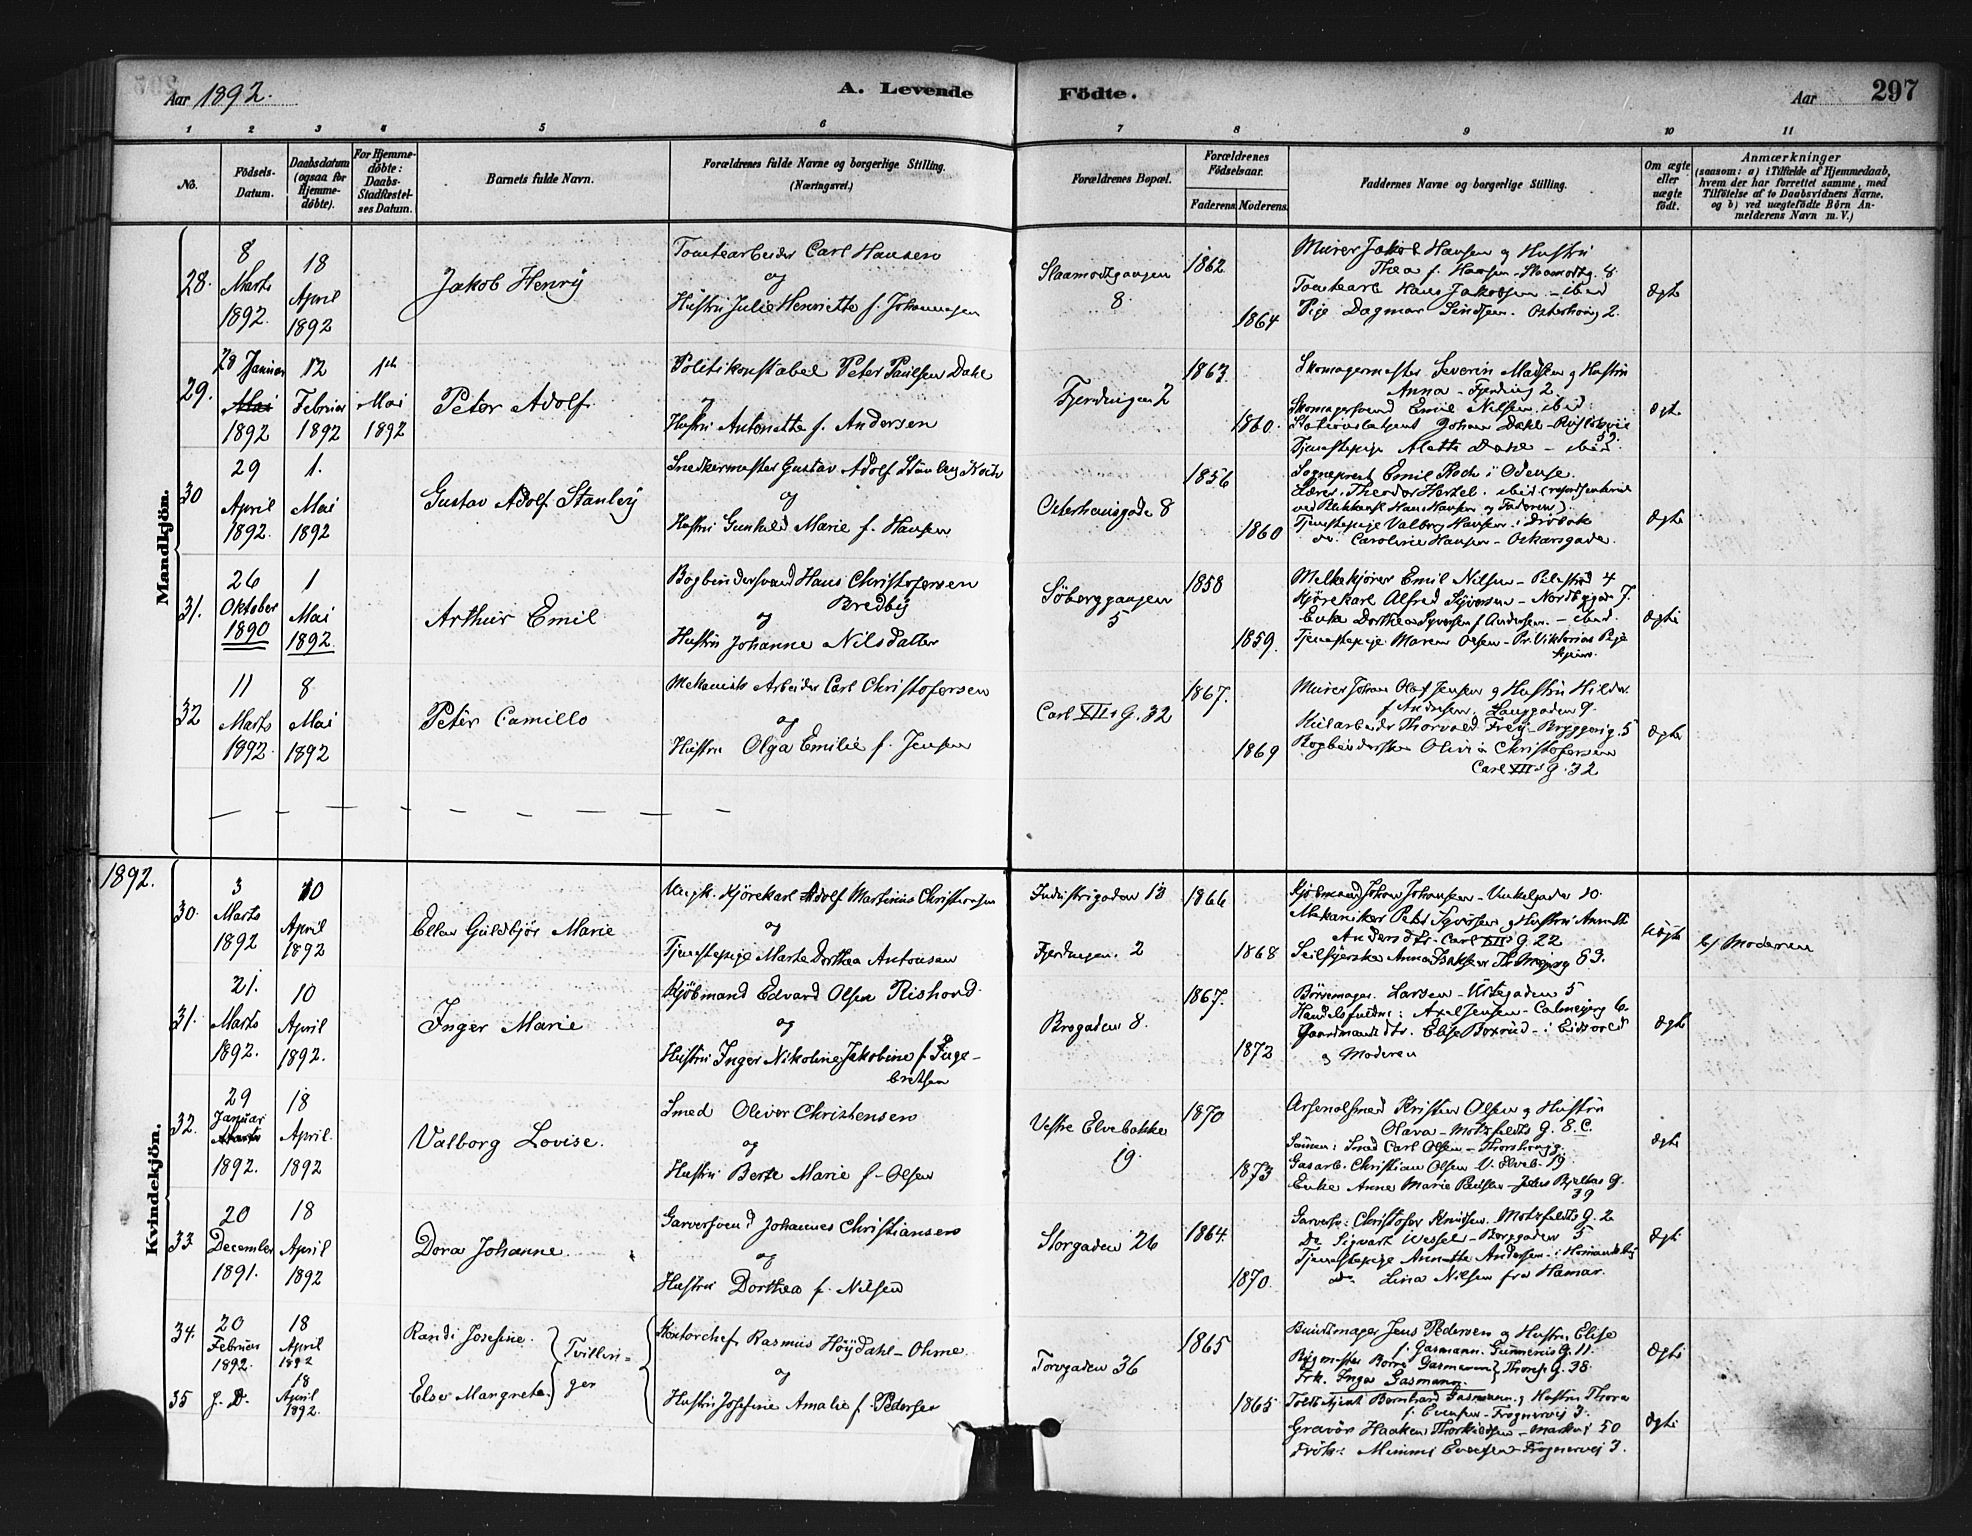 Aar 1892.
A. Levende
Födte.
Aar
297
1 2 3 4 5 6 7 8 9 10 11
No.
Födsels-
Datum.
Daabsdatum
(ogsaa for
Hjemme-
döbte).
For Hjemme-
döbte:
Daabs-
Stadfæstel-
ses Datum.
Barnets fulde Navn.
Forældrenes fulde Navne og borgerlige Stilling.
(Næringsvei.)
Forældrenes Bopæl.
Forældrenes
Födselsaar.
Faderens. Moderens.
Faddernes Navne og borgerlige Stilling.
Om ægte
eller
uægte
födt.
Anmærkninger
(saasom: a) i Tilfælde af Hjemmedaab,
hvem der har forrettet samme, med
Tilföielse af to Daabsvidners Navne,
og b) ved uægtefödte Börn An-
melderens Navn m. V.)
Mandkjön.
28.
8 Marts 1892.
18 April 1892
Jakob Henry
Tomtearbeider Carl Hansen
og
Hustru Julie Henriette f. Johannesen
Slaamodtgangen
8.
1862
1864
Murer Jakob Hansen og Hustru
Thea f. Hansen - Slaamodtg. 8.
Tomtearb Hans Jakobsen - ibid
Pige Dagmar - Osterhausg 2.
Ægte
29.
20 Januar
Mai
1892
12 Februar 1892
1ste Mai 1892
Peter Adolf
Politikonstabel Peter Paulsen Dahl
og
Hustru Antonette f. Andersen
Fjerdingen 2
1863
1860.
Skomagermester Severin Madsen og Hustru
Anna - Fjerding 2.
Skomagersvend Emil Nilsen ibid
Johan Dahl
Tjenestepige Alette Dahl - ibid.
Ægte
30
29 April 1892.
1. Mai 1892
Gustav Adolf Stanley
Snedkermester Gustav Adolf Stanley Koch
og
Hustru Gunhild Marie f. Hansen
Osterhausgade 8
1856
1860
Sogneprest Emil Koch i Odense
Lærer Theodor Hertel. ibid (repræsenterede
ved Hans Hansen og Faderen).
Tjenestepige Valborg Hansen i Dröbak
do. Caroline Hansen - Oskarsgade.
Ægte
31.
26 Oktober 1890
1 Mai 1892.
Arthur Emil
Bogbindersvend Hans Christofersen
Bredby
og
Hustru Johanne Nilsdatter
Söberggangen
5
1858
1859.
Melkekjörer Emil Nilsen - Pilestræd 4
Kjörekarl Alfred Syversen - Nordbygd 7.
Enke Dorthea Syversen f Andersen. - ibid.
Tjenestepige Maren Olsen - Pr. Viktorias Pige
hjem.
Ægte
32
11 Marts 1892.
8 Mai 1892
Peter Camillo
Mekanisk Arbeider Carl Christofersen
og
Hustru Olga Emilie f. Jensen
Carl XIIs G. 32
1867.
1869
Murer Johan Olaf Jensen og Hustru Hilda
f. Andersen. Langgaden 9.
Thorvald Frey - Bryggerig. 5
Olivia Christofersen
Carl XIIs G. 32
Ægte
1892.
Kvindekjön.
30.
3 Marts 1892
10 April 1892
Ellen Guldbjör Marie
Ungk. Kjörekarl Adolf Martinius Christensen
og
Tjenestepige Marte Dorthea Antonsen
Industrigaden 13
Fjerdingen. 2
1866
1868
Kjöbmand Johan Johansen - Vinkelgaden 10.
Mekaniker Peter Syversen og Hustru Annette
Andersdtr. - Carl XIIs G 22
Seilsyerske Anna Isaksen Th. Meyersg 63.
Uægte
b/ Moderen
31.
21. Marts 1892.
10 April 1892.
Inger Marie
Kjöbmand Edvard Olsen Rishovd
og
Hustru Inger Nikoline Jakobine f. Inge-
bretsen
Brogaden 8.
1867.
1872
Börsemager. Larsen - Urtegaden 5
Axel Jensen - Calmeyersg 6.
Gaardmandsdtr. Elise Boxrud - i Eidsvold
og Moderen
Ægte
32.
29 Januar
Marts
1892.
18 April. 1892
Valborg Lovise.
Smed Oliver Christensen
og
Hustru Berte Marie f. Olsen
Vestre Elvebakke
19.
1870
1873
Arsenalsmed Kristian Olsen og Hustru
Olava - Motzfeldts G. 8 C.
Smed Carl Olsen - Thorshaugg.
Gasarb. Christian Olsen V. Elveb. 19
Enke Anne Marie Paulsen - Jens Bjelkes G.
39
Ægte
33
20 December 1891.
18 April 1892
Dora Johanne.
Garversvend Johannes Christiansen
og
Hustru Dorthea f. Nilsen
Storgaden 26
1864.
1870.
Garversv: Christofer Knudsen. Motzfeldts G. 2
Do Sigvart Wessel - Borggaden 5
Tjenestepige Annette Andersen - i
do. Lina Nilsen fra Hamar.
Ægte
34.
20 Februar 1892.
18 April 1892
Randi Josefine.
Tvillin-
ger
Kontorchef Rasmus Höydahl-Ohme.
og
Hustru Josefine Amalie f. Pedersen
Torvgaden 36
1865
1865
35
f. D.
18 April 1892.
Else Margrete.
Buntmager Jens Pedersen og Hustru Elise
f. Gasmann. Gunnerus G. 11.
Bygmester Borre Gasmann
Frk. Inga Gasmann.
Thorsg G. 38.
Toldbetjent Bernhard Gasmann og Hustru Thora
f. Evensen - Frognervej 3.
Gravör Haaken Thorkildsen - Markvej 50
Frök: Mimmi Evensen - Frognervej 3.
Ægte
Ægte